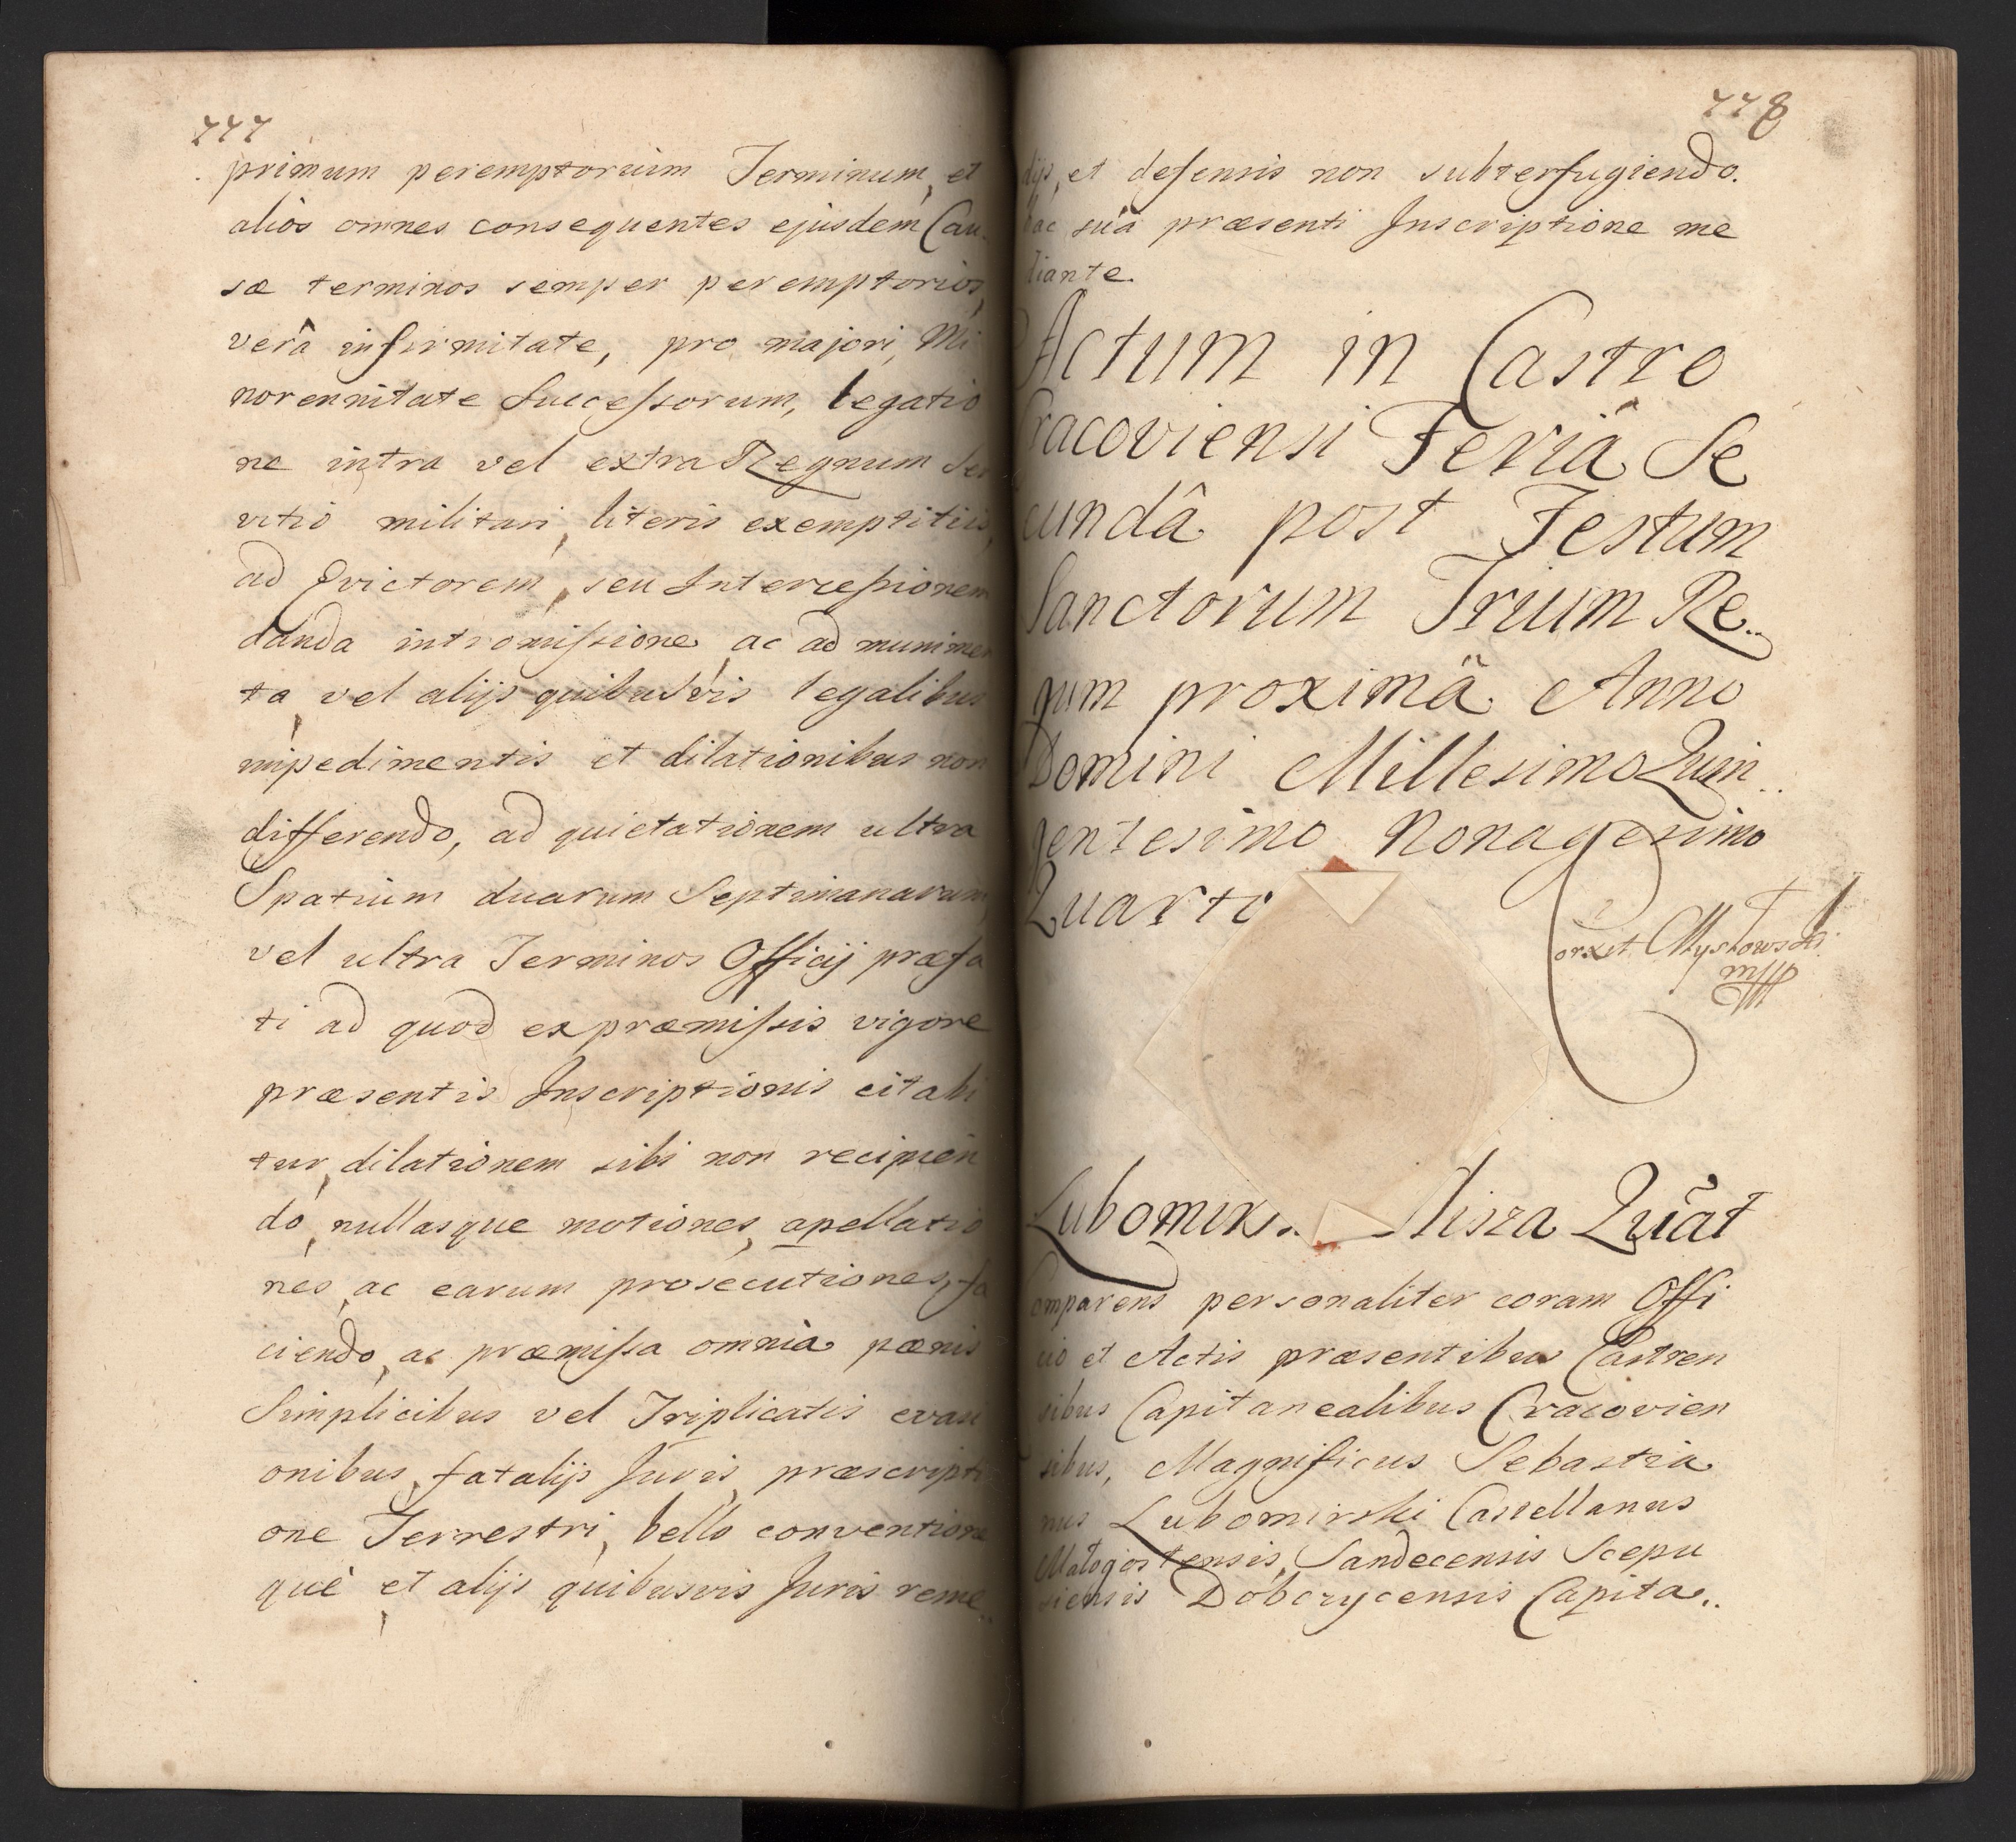 777
primum peremptorium Terminum, et
alios omnes consequentes ejusdem Cau
sæ terminos semper peremptorios,
verâ infirmitate, pro majori, Mi
norennitate Successorum, legatio
ne intra vel extra Regnum Ser
vitio militari, literis exemptitiis,
ad Evictorem, seu Intercessionem
danda intromissione, ac ad munimen
ta, vel alijs quibusvis legalibus
impedimentis et dilationibus non
differendo, ad quietationem ultra
Spatium duarum Septimanarum,
vel ultra Terminos Officij præfa
ti ad quod ex præmissis vigore
præsentis Inscriptionis citabi
tur, dilationem sibi non recipien
do, nullasque motiones, apellatio
nes, ac earum prosecutiones, fa
ciendo, ac præmissa omnia pœnis
Simplicibus vel Triplicatis evasi
onibus, fatalijs Juris, præscripti
one Terrestri, bello conventione
què et alijs quibusvis Juris reme..
778
dijs, et defensis non subterfugiendo.
hac suâ præsenti Inscriptione me
diante.
Actum in Castro
Cracoviensi Feriâ Se
cundâ post Festum
Sanctorum Trium Re..
gum proximâ Anno
Domini Millesimo Quin..
gentesimo Nonagesimo
Quarto
Lubomirs.. Lisza Quât
Comparens personaliter coram Offi
cio et Actis præsentibus Castren
sibus Capitanealibus Cracovien
sibus, Magnificus Sebastia
nus Lubomirski Castellanus
Małogostensis, Sandecensis Scepu
siensis Dobczycensis Capita..